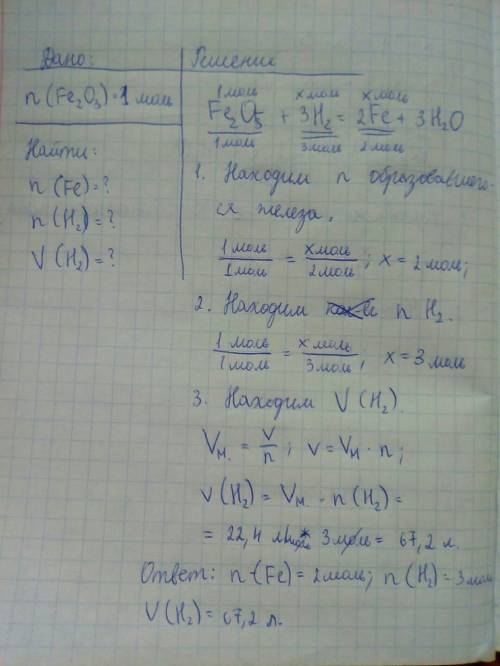 Дано:
n(Fe₂O₃) = 1 моль
Найти:
n(Fe) = ?
n(H₂) = ?
V(H₂) = ?
Решение
1 моль x моль x моль
Fe₂O₃ + 3H₂ = 2Fe + 3H₂O
1 моль 3 моль 2 моль
1. Находим n образовавшего-
ся железа.
1 моль / 1 моль = x моль / 2 моль ; x = 2 моль;
2. Находим n H₂.
1 моль / 1 моль = x моль / 3 моль ; x = 3 моль
3. Находим V(H₂).
Vм. = V / n ; V = Vм · n ;
V(H₂) = Vм. · n(H₂) =
= 22,4 л/моль * 3 моль = 67,2 л.
Ответ: n(Fe) = 2 моль; n(H₂) = 3 моль
V(H₂) = 67,2 л.